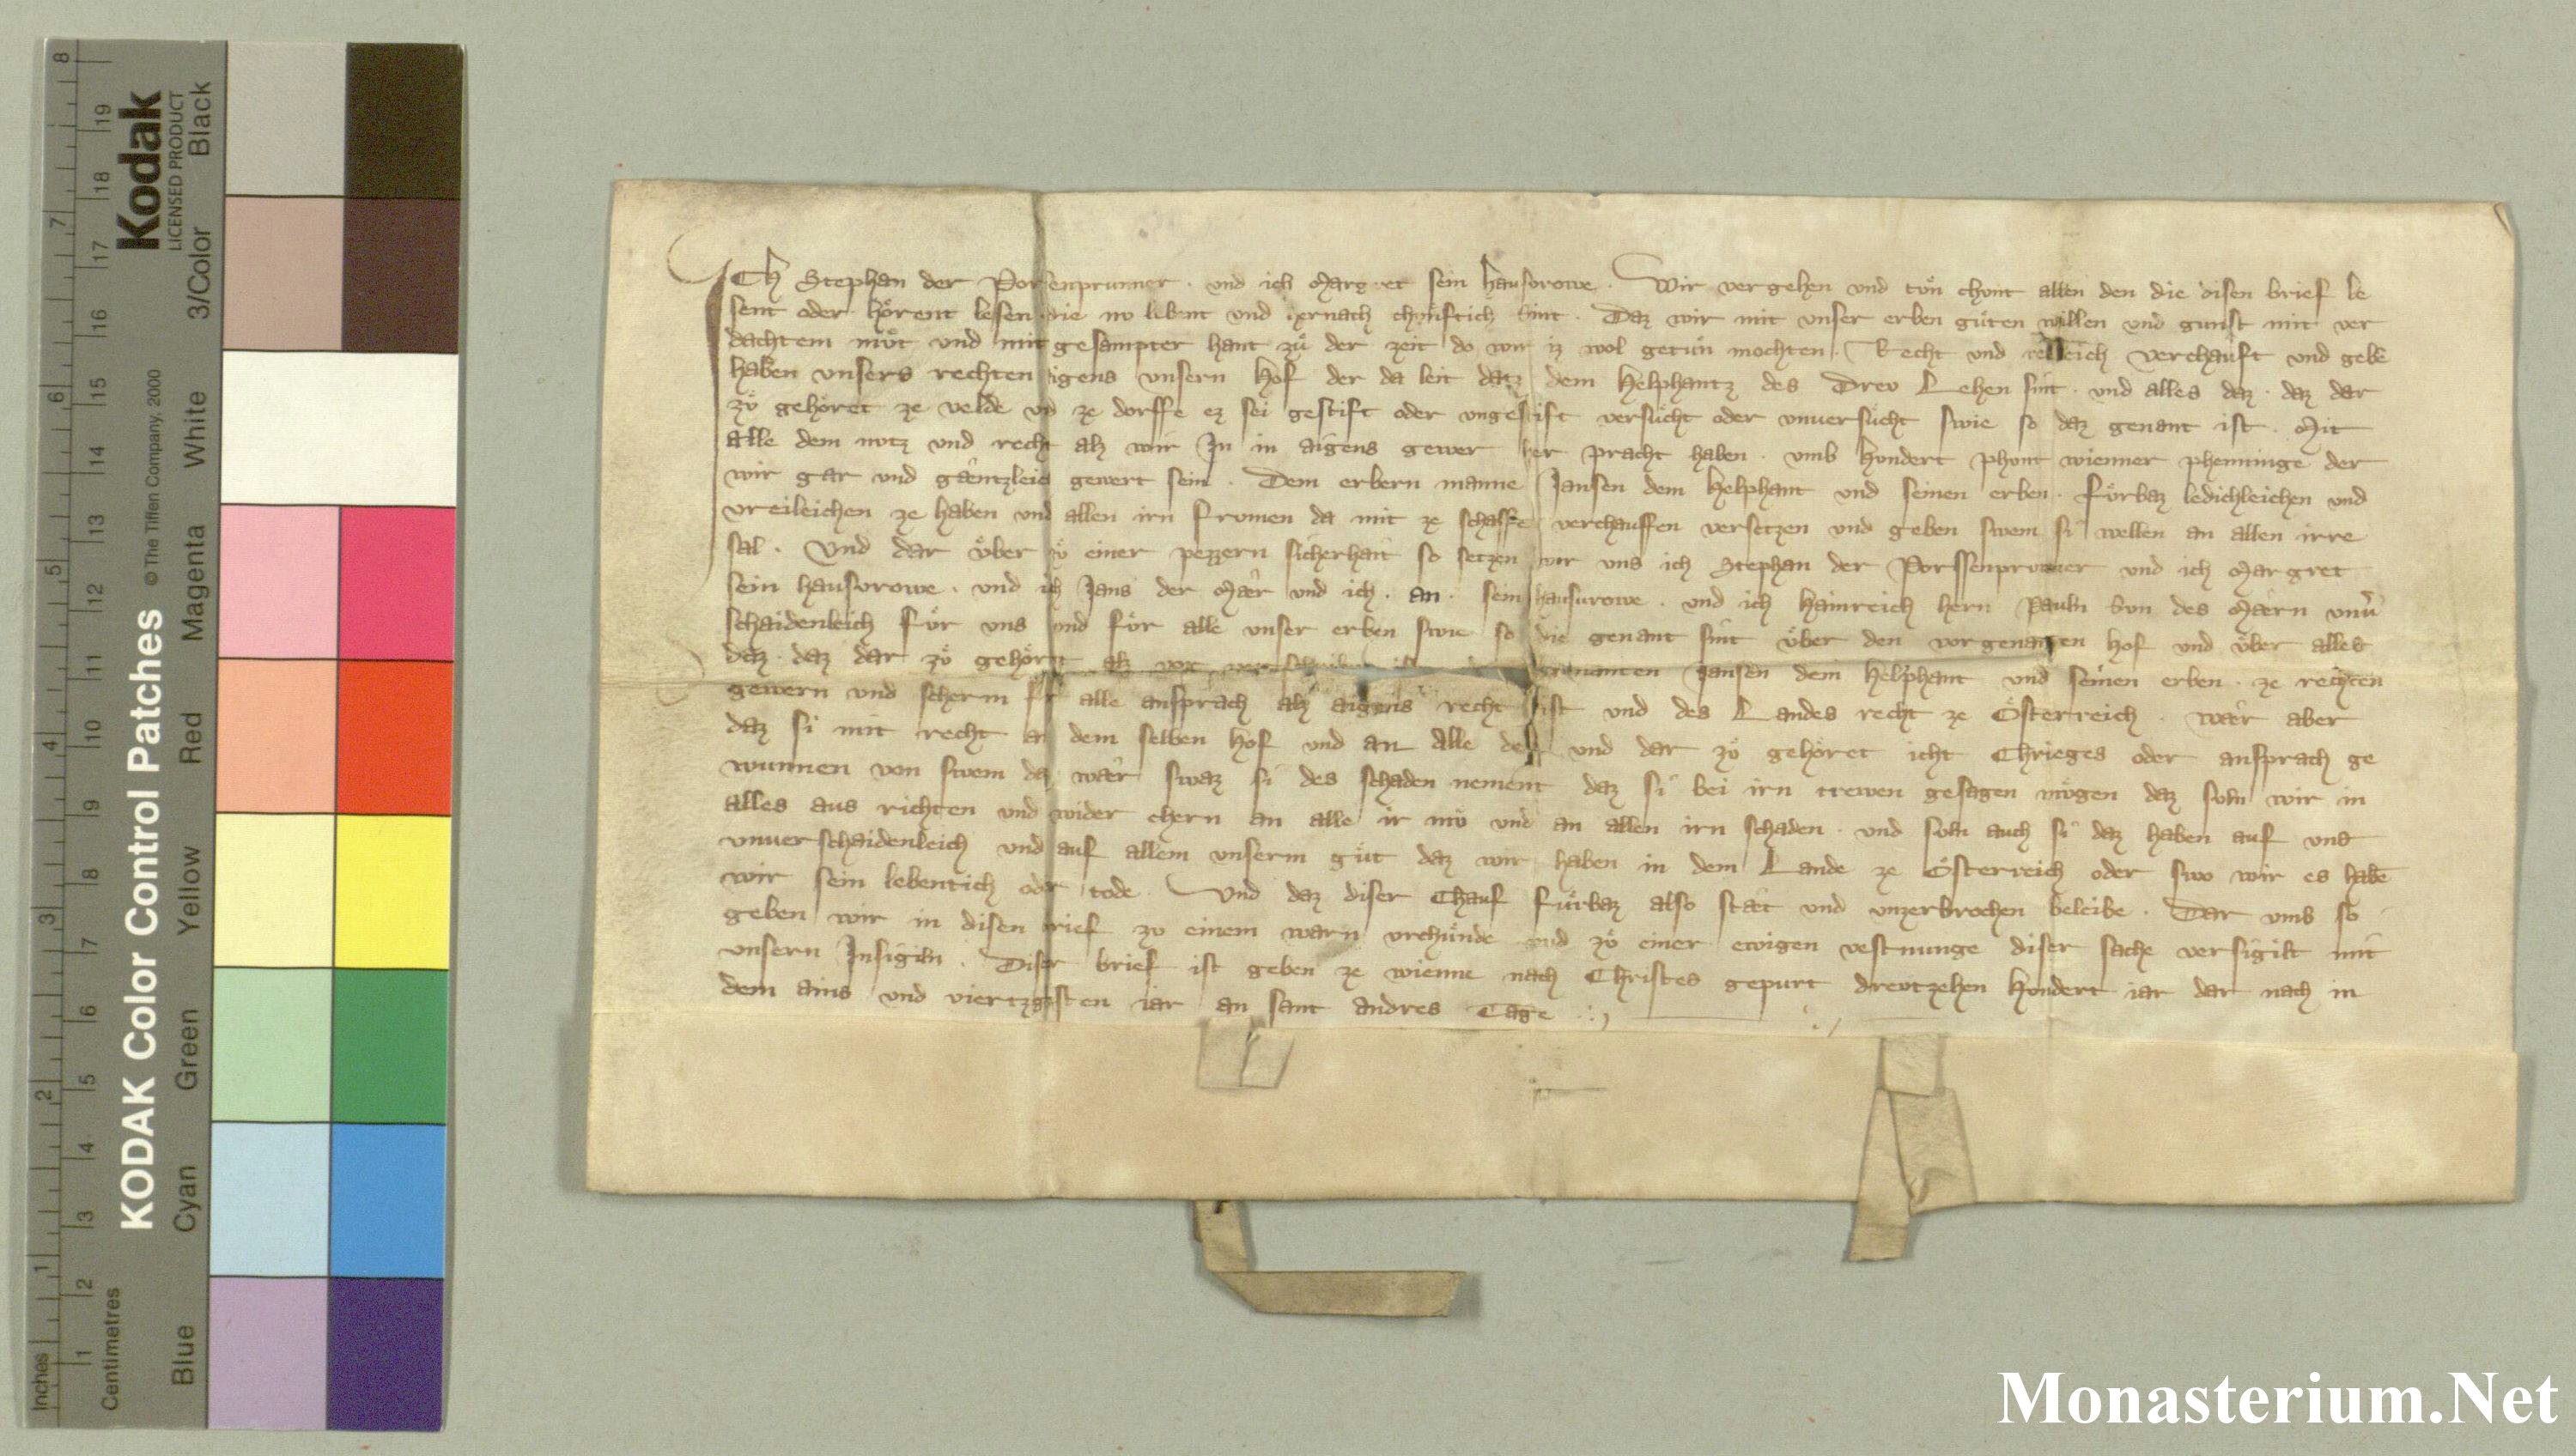 Ich Stephan der Porsenprunner · und ich Margret sein hausvrowe · Wir vergehen und tuͦn chunt allen den die disen brief le
sent oder hoͤrent lesen die nv lebent und hernach chuͤnftich sint · Daz wir mit unser erben guͤten willen und gunst mit ver
dachtem muͦt und mit gesampter hant zuͦ der zeit do wir iz wol getuͦn mochten · Recht und redleich verchauft und gebē
haben unsers rechten aigens unsern Hof der da leit datz dem Helphantz des Drev Lehen sint · und alles daz · daz dar
zuͦ gehoͤret ze velde und ze dorffe ez sei gestift oder ungestift versuͦcht oder unversuͦcht swie so daz genant ist · Mit
alle dem nutz und recht alz wir In in aigens gewer her pracht haben · umb Hundert phunt wienner phenninge der
wir gar und gaͤntzleich gewert sein · Dem erbern manne Jansen dem Helphant und seinen erben · Fuͤrbaz ledichleichen und
vreileichen ze haben und allen irn frumen da mit ze schaffen verchauffen versetzen und geben swem si wellen an allen irre
sal · Und dar uͤber zuͦ einer pezzern sicherhait so setzen wir uns ich Stephan der Porssenprunner und ich Margret
sein hausvrowe · und ich Jans der Maͤr und ich · an · sein hausvrowe · und ich Hainreich hern Pauln Sun des Maͤrn unv̄
schaidenleich Fuͤr uns und Fuͤr alle unser erben swie so die genant sint uͤber den vorgenanten Hof und uͤber alles
daz · daz dar zuͦ gehoͤret alz vor Jansen dem Helphant und seinen erben · ze rechten
gewern und scherm fuͤr alle ansprach alz aigens recht ist und des Landes recht ze Oͤsterreich · waͤr aber
daz si mit recht an dem selben Hof und an alle deß und dar zuͦ gehoͤret icht Chrieges oder ansprach ge
wunnen von swem daz waͤr swaz si des schaden nement daz si bei irn trewen gesagen muͤgen daz suln wir in
alles aus richten und wider chern an alle ir muͤ und an allen irn schaden · und suln auch si daz haben auf uns
unverschaidenleich und auf allem unserm guͦt daz wir haben in dem Lande ze Oͤsterreich oder swo wir es habē
wir sein lebentich oder tode · Und daz diser Chauf Fuͤrbaz also staͤt und unzerbrochen beleibe · Dar umb so
geben wir in disen brief zu einem warn urchuͤnde und zuͦ einer ewigen vestnunge diser sache versigilt mit
unsern Insigiln · Diser brief ist geben ze wienne nach Christes gepurt drevtzehen Hundert iar dar nach in
dem ains und viertzgisten iar an sant andres Tage
Kodak
LICENSED PRODUCT
KODAK Color Control Patches
© The Tiffen Company, 2000
Blue Cyan Green Yellow Red Magenta White 3/Color Black
Inches 1 2 3 4 5 6 7 8
Centimetres 1 2 3 4 5 6 7 8 9 10 11 12 13 14 15 16 17 18 19
Monasterium.Net